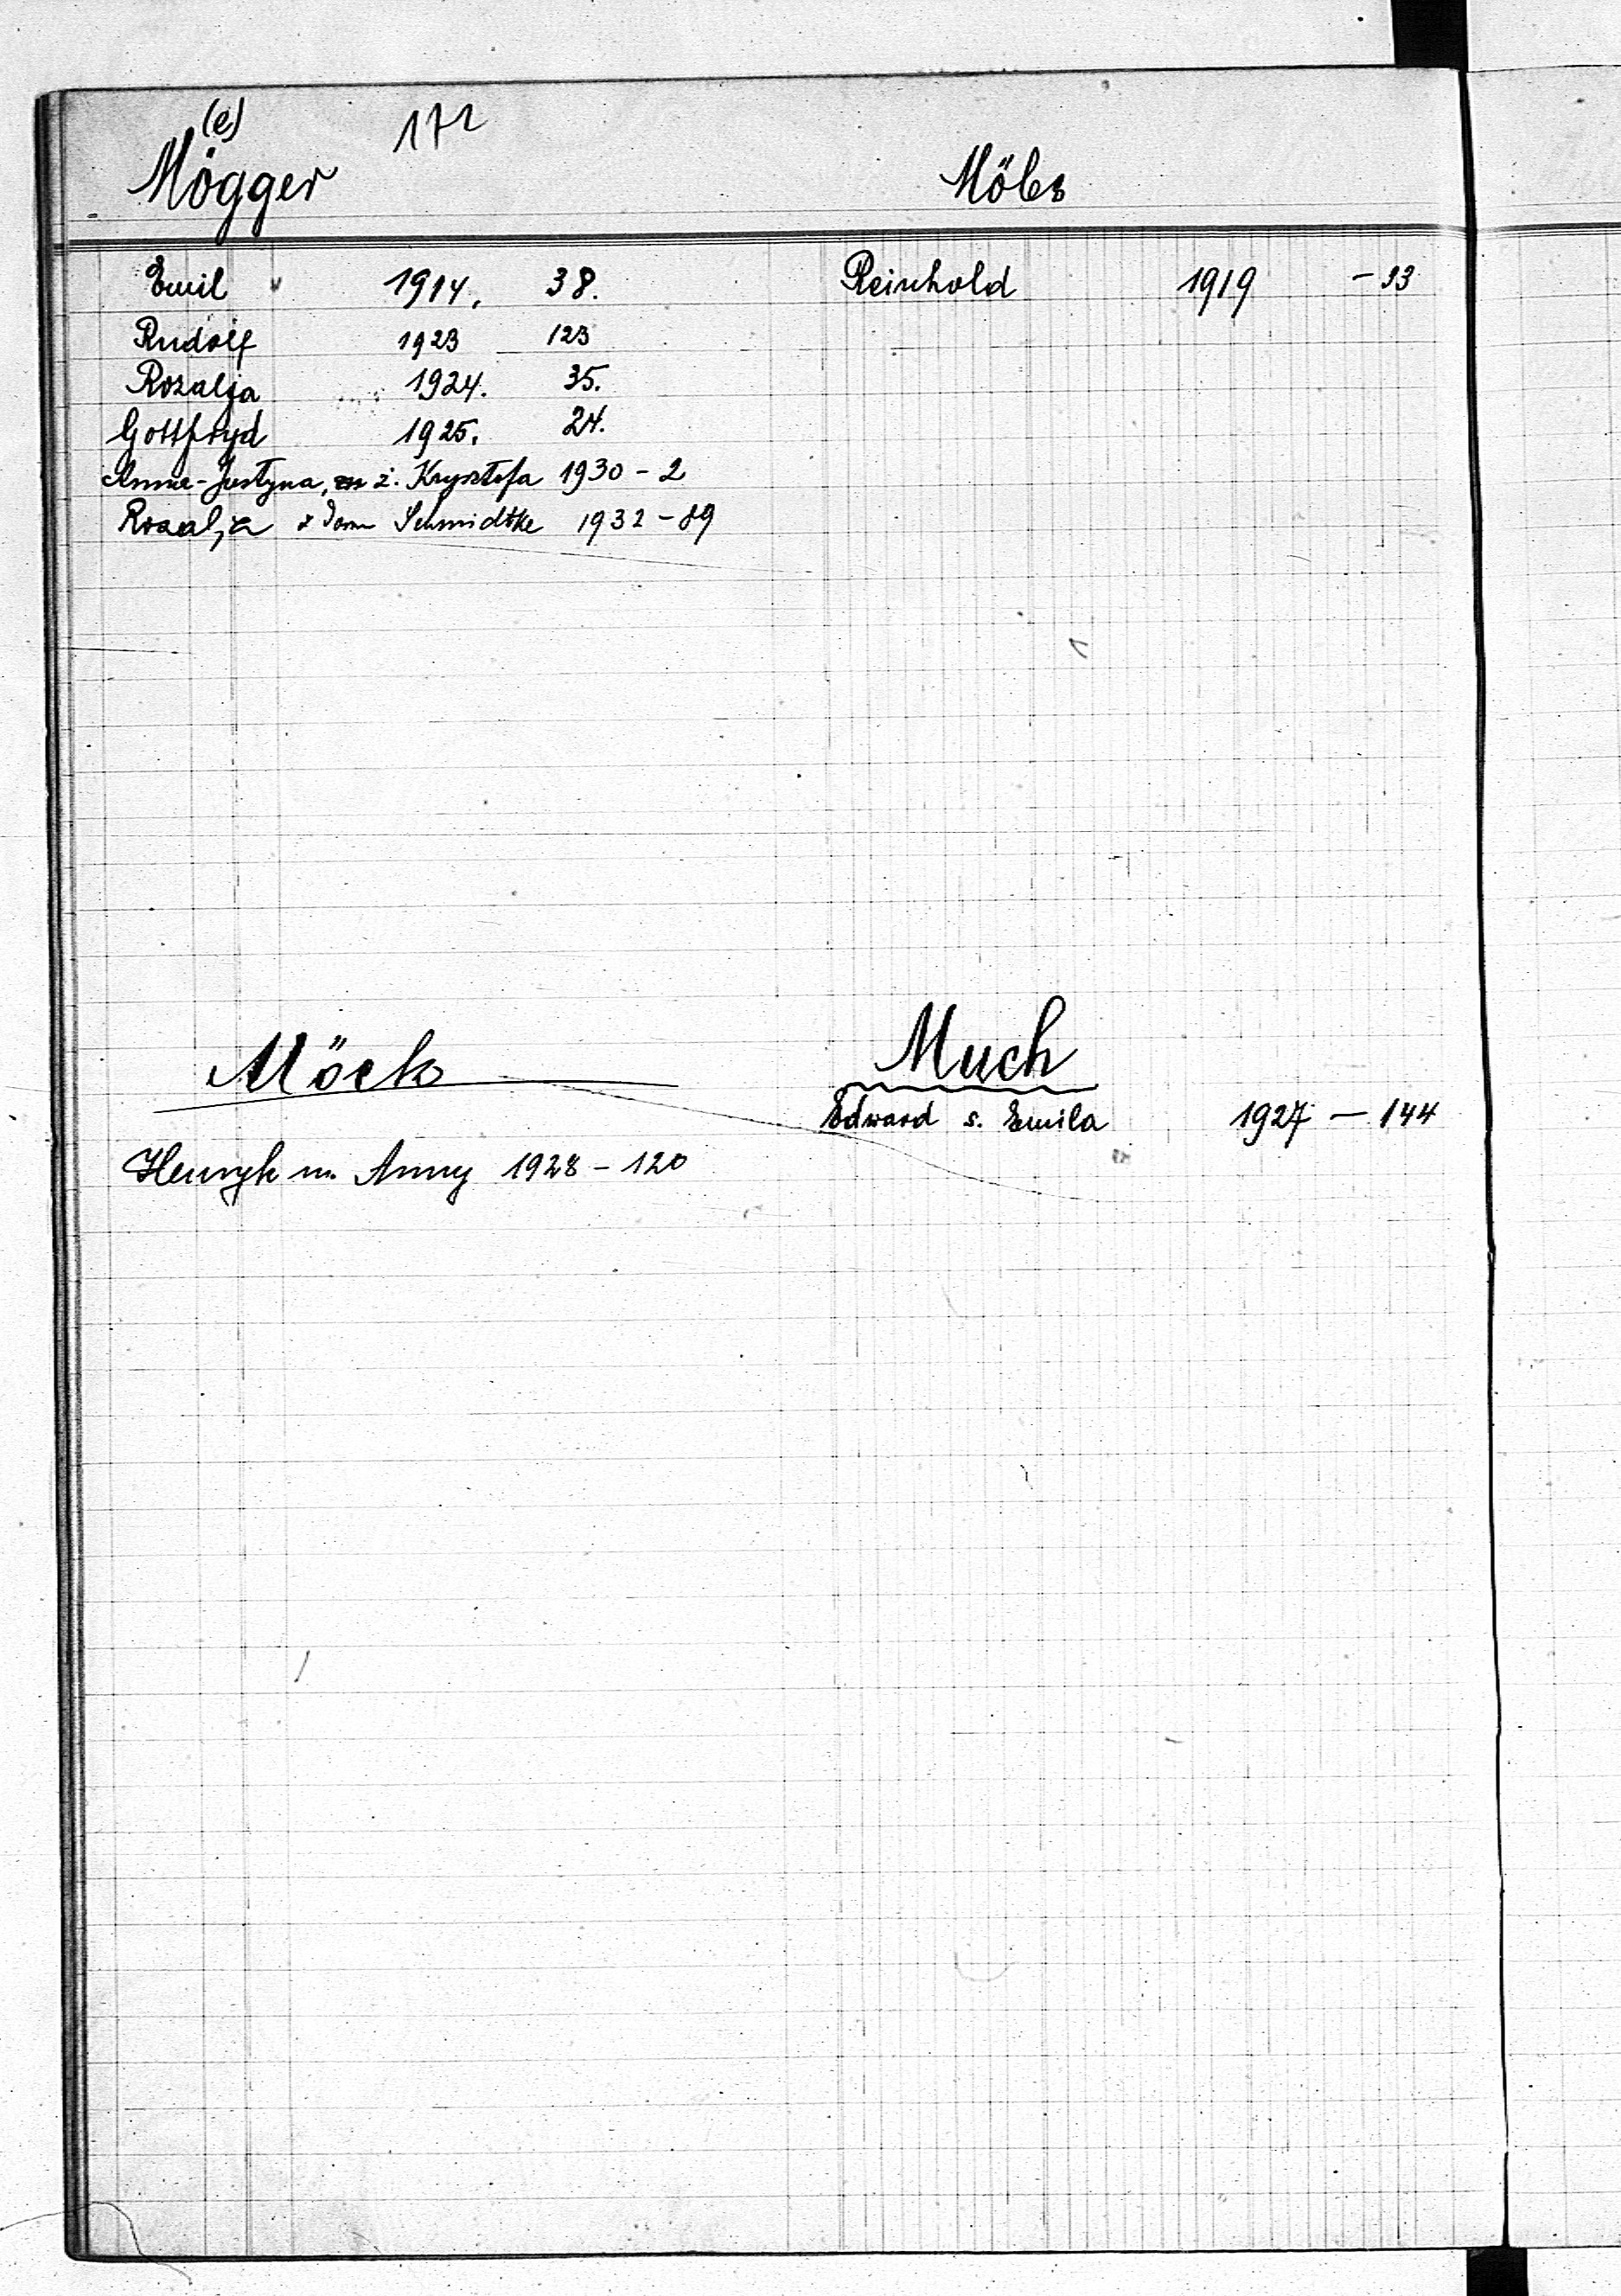 (e) 172
Mögger
Emil 1914. 38.
Rudolf 1923 123
Rozalja 1924. 35.
Gottfryd 1925. 24.
Anna-Justyna, ż. Krysztofa 1930 - 2
Rozalja z dom Schmidtke 1932 - 89
Möbs
Reinhold 1919 - 93
Möck
Henryk m. Anny 1928 - 120
Much
Edward s. Emila 1927 - 144